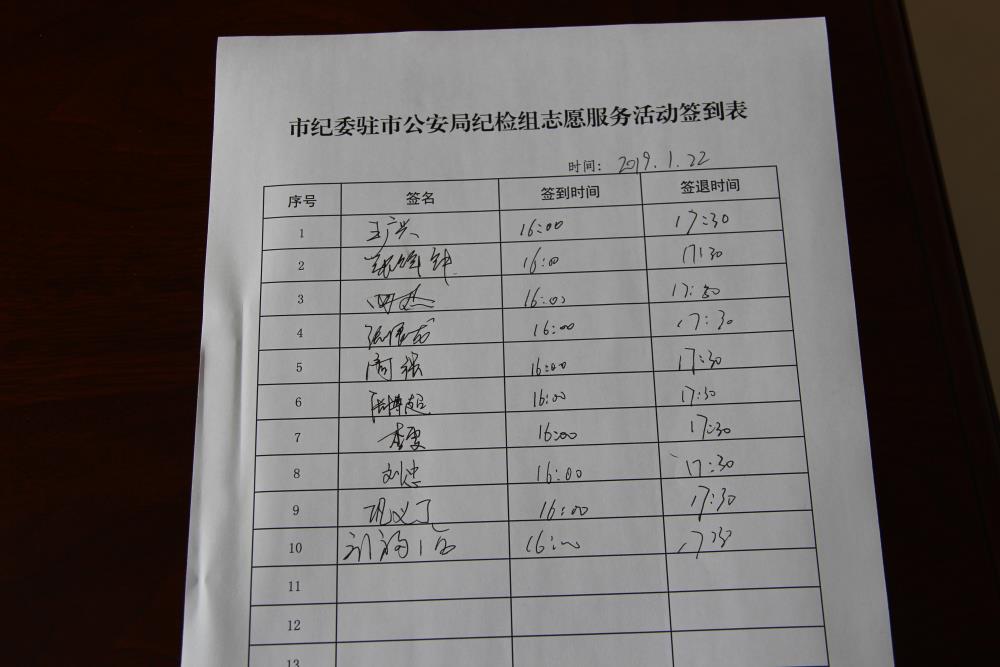 市纪委驻市公安局纪检组志愿服务活动签到表
时间: 2019.1.22
序号 签名 签到时间 签退时间
1 王广兴 16:00 17:30
2 16:00 17:30
3 16:00 17:30
4 16:00 17:30
5 周强 16:00 17:30
6 16:00 17:30
7 16:00 17:30
8 刘忠 16:00 17:30
9 16:00 17:30
10 16:00 17:30
11
12
13